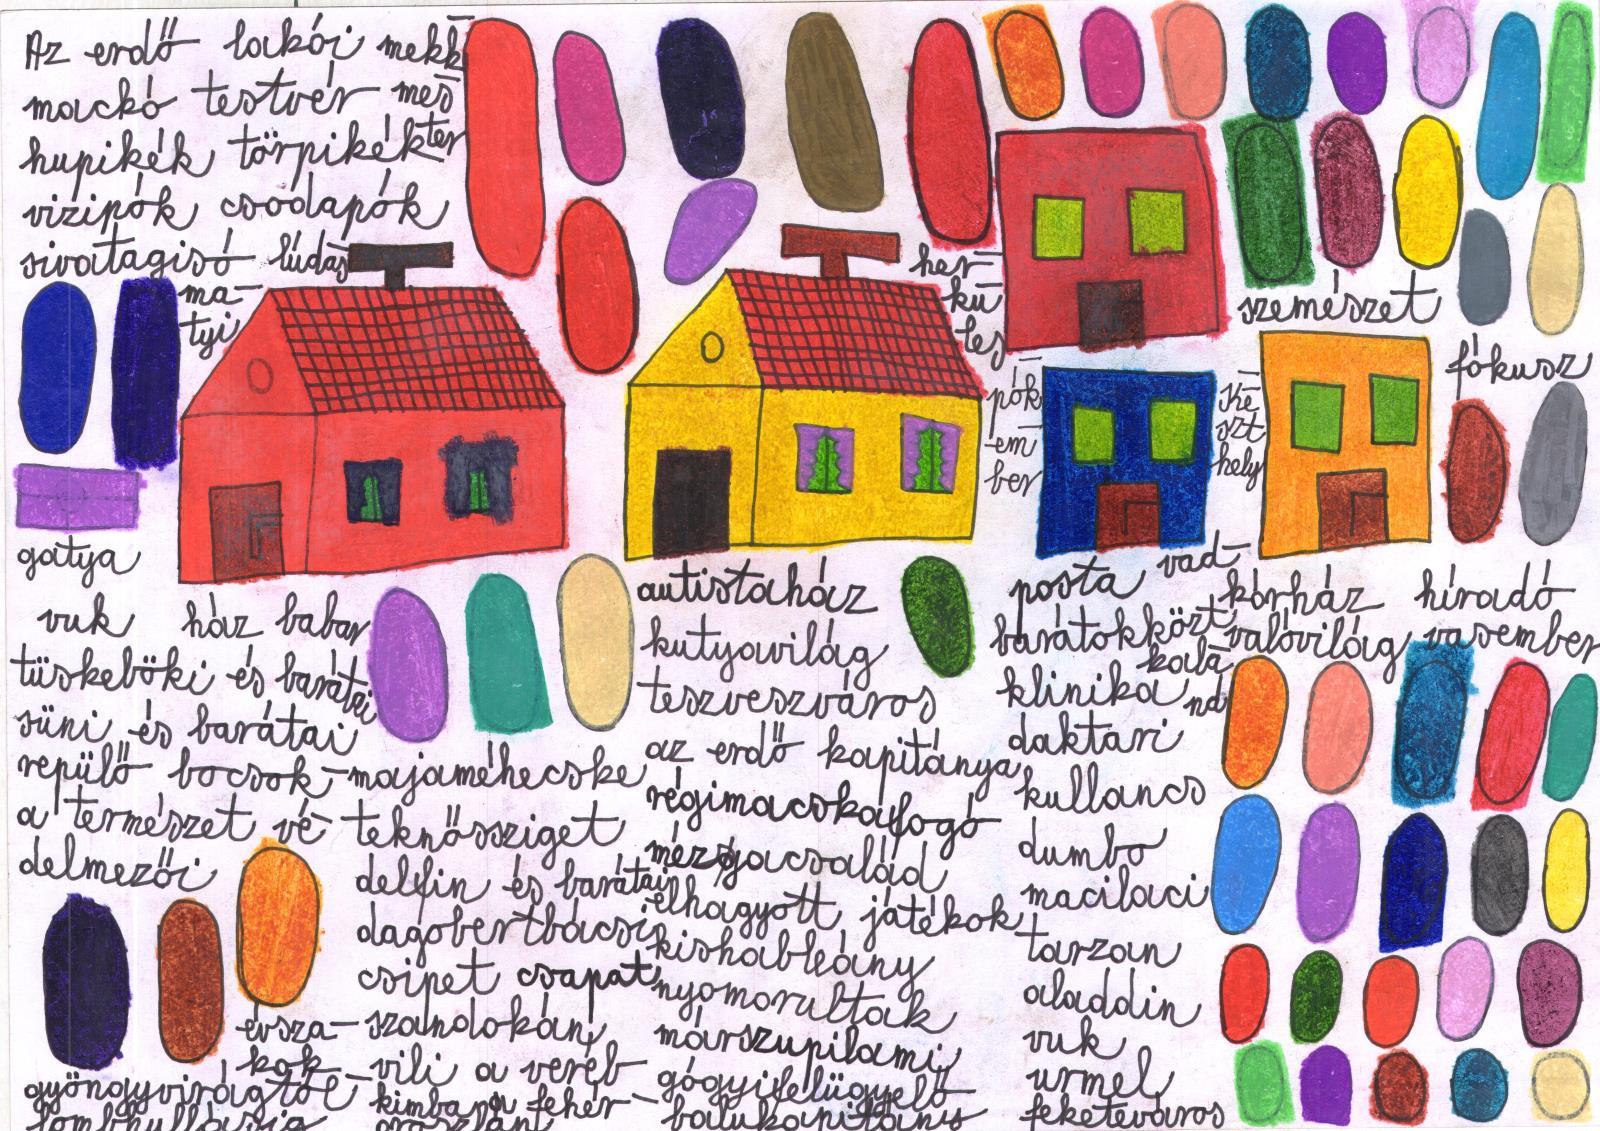 Az erdő lakói mekk
mackó testvér mes
ter
hupikék törpikék
vizipók csodapók
sivatagisó lúdas
ma-
tyi
her-
kú
les
szemészet
fókusz
pók
em
ber
Ké
szt
hely
gatya
vuk ház babar
tüskeböki és barátai
süni és barátai
repülő bocsok
a természet vé-
delmezői
évsza-
kok
gyöngyvirágtól
lombhullásig
majaméhecske
teknössziget
delfin és barátai
dagobertbácsi
csipet csapat
szandokán
vili a veréb
kimba a fehér
oroszlán
autistaház
kutyavilág
teszveszváros
az erdő kapitánya
régimacskafogó
mézgacsalád
elhagyott játékok
kishableány
nyomorultak
márszupilami
gógyifelügyelő
balukapitány
posta vad
barátokközt
kala
nd
klinika
daktari
kullancs
dumbo
macilaci
tarzan
aladdin
vuk
urmel
feketeváros
kórház híradó
valóvilág vasember